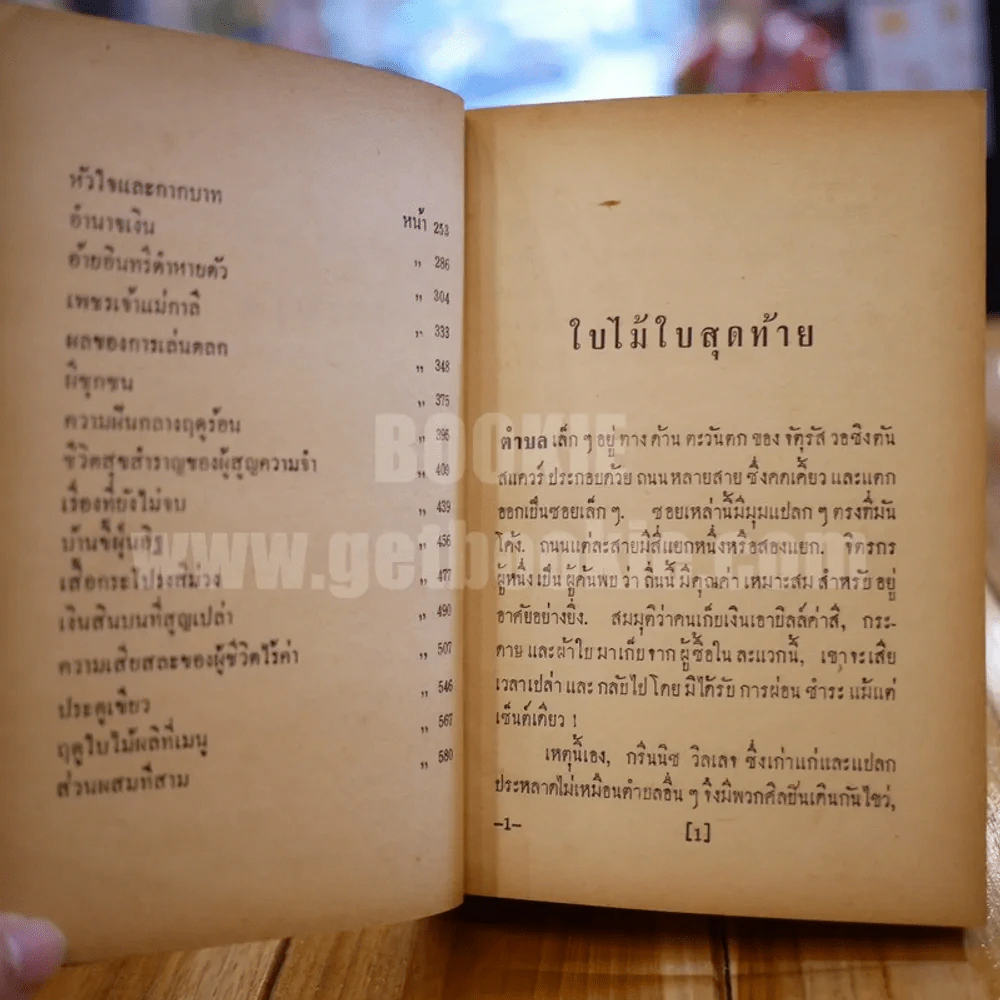 หัวใจและกากบาท หน้า 253
อำนาจเงิน ,, 286
อ้ายอินทรีดำหายตัว ,, 304
เพชรเจ้าแม่กาลี ,, 333
ผลของการเล่นตลก ,, 348
ผีซุกซน ,, 375
ความฝันกลางฤดูร้อน ,, 395
ชีวิตสุขสำราญของผู้สูญความจำ ,, 409
เรื่องที่ยังไม่จบ ,, 439
บ้านขี้ฝุ่นอิฐ ,, 456
เสื้อกระโปรงสีม่วง ,, 477
เงินสินบนที่สูญเปล่า ,, 490
ความเสียสละของผู้ชีวิตไร้ค่า ,, 507
ประตูเขียว ,, 546
ฤดูใบไม้ผลิที่เมนู ,, 567
ส่วนผสมที่สาม ,, 580
ใบไม้ใบสุดท้าย
ตำบลเล็ก ๆ อยู่ ทาง ด้าน ตะวันตก ของ จัตุรัส วอชิงตัน
สแควร์ ประกอบด้วย ถนนหลายสาย ซึ่งคดเคี้ยว และแตก
ออกเป็นซอยเล็ก ๆ. ซอยเหล่านี้มีมุมแปลก ๆ ตรงที่มัน
โค้ง. ถนนแต่ละสายมีสี่แยกหนึ่งหรือสองแยก. จิตรกร
ผู้หนึ่ง เป็น ผู้ค้นพบ ว่า ถิ่นนี้ มีคุณค่า เหมาะสม สำหรับ อยู่
อาศัยอย่างยิ่ง. สมมุติว่าคนเก็บเงินเอาบิลล์ค่าสี, กระ-
ดาษ และผ้าใบ มาเก็บจาก ผู้ซื้อใน ละแวกนี้, เขาจะเสีย
เวลาเปล่า และ กลับไป โดย มิได้รับ การผ่อน ชำระ แม้แต่
เซ็นต์เดียว !
เหตุนี้เอง, กรีนนิช วิลเลจ ซึ่งเก่าแก่และแปลก
ประหลาดไม่เหมือนตำบลอื่น ๆ จึงมีพวกศิลปินเดินกันไขว่,
–1– [1]
BOOKIE
www.getbookie.com